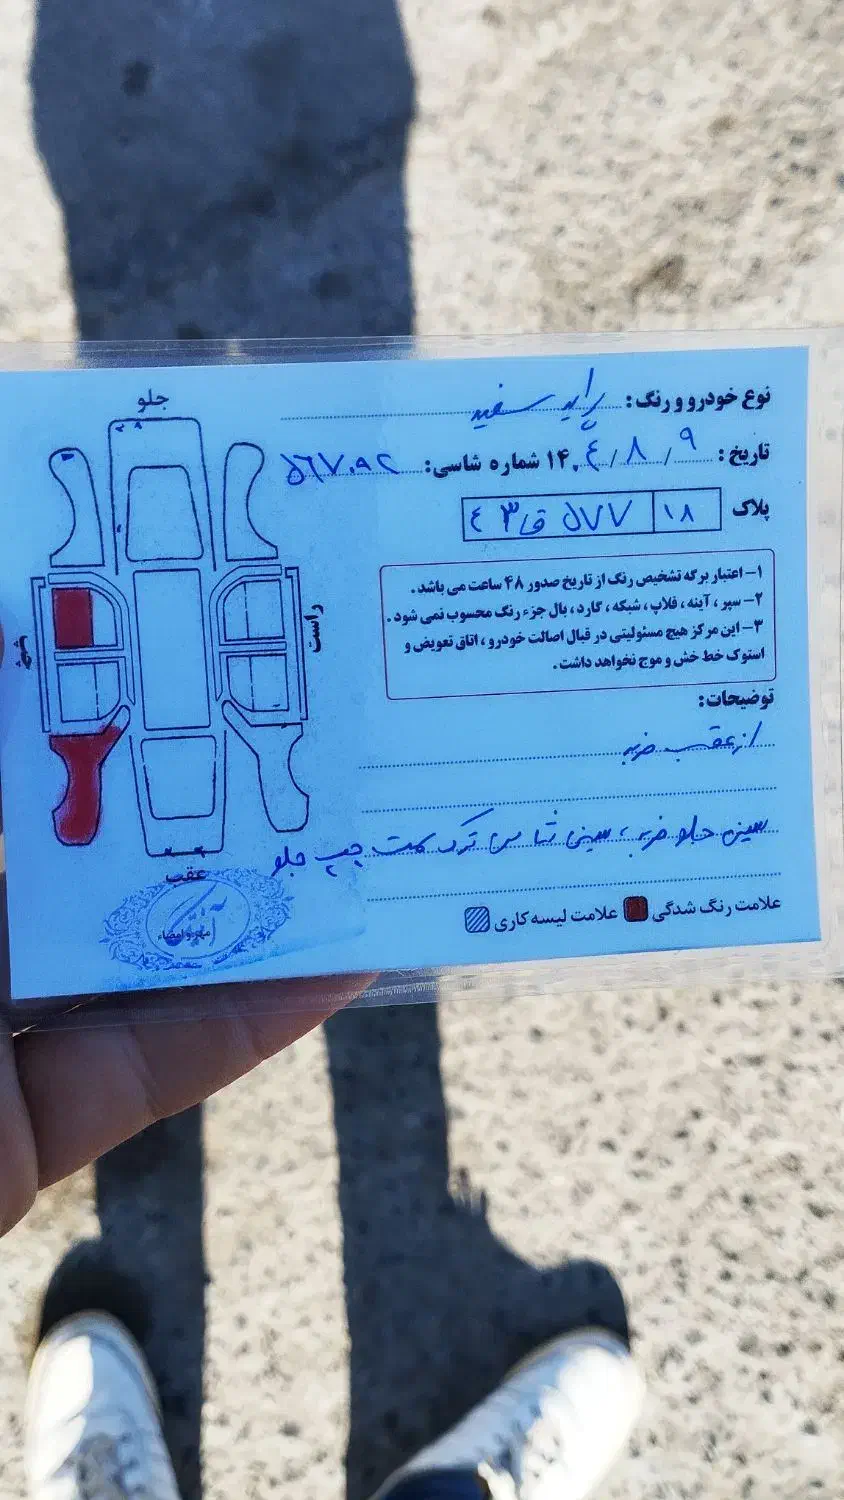 جلو
راست
چپ
عقب
مهر و امضاء
نوع خودرو و رنگ: پراید سفید
تاریخ: ۱۴۰٤/۸/۹ شماره شاسی: ۵۶۷۰۹۲
پلاک ۱۸ ۵۷۷ ق ۳٤
۱- اعتبار برگه تشخیص رنگ از تاریخ صدور ۴۸ ساعت می باشد.
۲- سپر، آینه، قلاپ، شبکه، گارد، بال جزء رنگ محسوب نمی شود.
۳- این مرکز هیچ مسئولیتی در قبال اصالت خودرو، اتاق تعویض و
استوک خط خش و موج نخواهد داشت.
توضیحات:
از عقب ضربه
سینی جلو ضربه، سینی شاسی ترک سمت چپ جلو
علامت رنگ شدگی علامت لیسه کاری